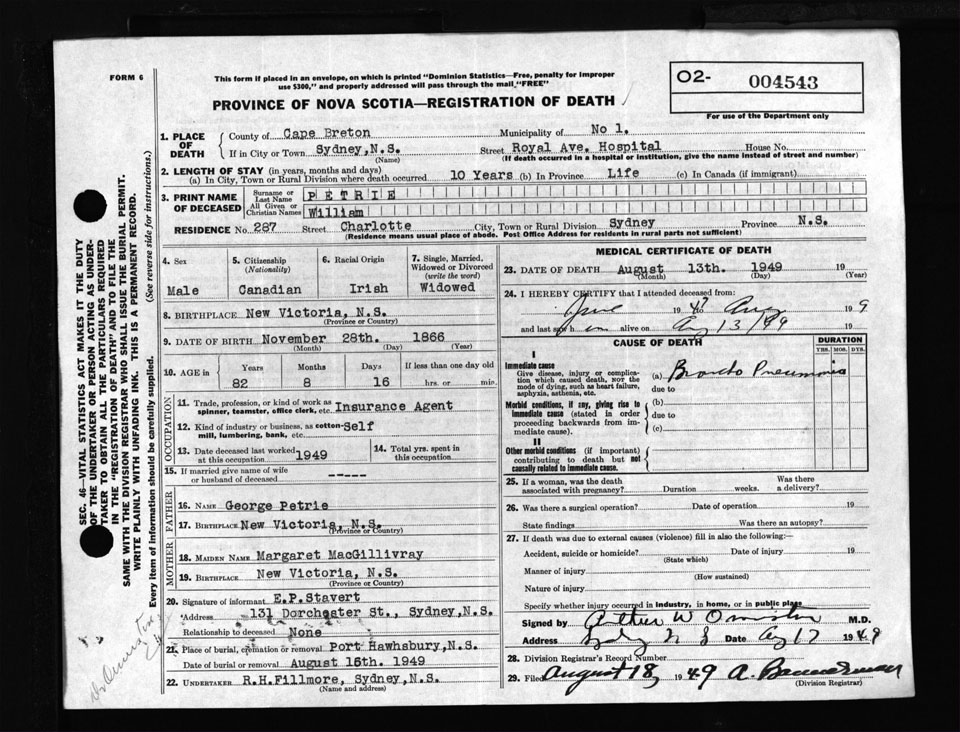 FORM 6
This form if placed in an envelope, on which is printed "Dominion Statistics—Free, penalty for improper
use $300," and properly addressed will pass through the mail "FREE"
O2- 004543
For use of the Department only
PROVINCE OF NOVA SCOTIA—REGISTRATION OF DEATH
1. PLACE OF DEATH
County of Cape Breton Municipality of No 1.
If in City or Town Sydney, N.S. Street Royal Ave. Hospital House No.
(Name) (If death occurred in a hospital or institution, give the name instead of street and number)
2. LENGTH OF STAY (in years, months and days)
(a) In City, Town or Rural Division where death occurred 10 Years (b) In Province Life (c) In Canada (if immigrant)
3. PRINT NAME OF DECEASED
Surname or Last Name PETRIE
All Given or Christian Names William
RESIDENCE No. 287 Street Charlotte City, Town or Rural Division Sydney Province N.S.
(Residence means usual place of abode. Post Office Address for residents in rural parts not sufficient)
4. Sex
Male
5. Citizenship
(Nationality)
Canadian
6. Racial Origin
Irish
7. Single, Married,
Widowed or Divorced
(write the word)
Widowed
8. BIRTHPLACE New Victoria, N.S.
(Province or Country)
9. DATE OF BIRTH November 28th. 1866
(Month) (Day) (Year)
10. AGE in
Years Months Days If less than one day old
82 8 16 hrs. or min.
OCCUPATION
11. Trade, profession, or kind of work as
spinner, teamster, office clerk, etc. Insurance Agent
12. Kind of industry or business, as cotton-
mill, lumbering, bank, etc. Self
13. Date deceased last worked
at this occupation 1949
14. Total yrs. spent in
this occupation
15. If married give name of wife
or husband of deceased -----
FATHER
16. NAME George Petrie
17. BIRTHPLACE New Victoria, N.S.
(Province or Country)
MOTHER
18. MAIDEN NAME Margaret MacGillivray
19. BIRTHPLACE New Victoria, N.S.
(Province or Country)
20. Signature of informant E.P.Stavert
Address 131 Dorchester St., Sydney,N.S.
Relationship to deceased None
21. Place of burial, cremation or removal Port Hawksbury,N.S.
Date of burial or removal August 15th. 1949
22. UNDERTAKER R.H.Fillmore, Sydney,N.S.
(Name and address)
MEDICAL CERTIFICATE OF DEATH
23. DATE OF DEATH August 13th. 1949 19
(Month) (Day) (Year)
24. I HEREBY CERTIFY that I attended deceased from:
June 1947 to Aug 19 9
and last saw him alive on Aug 13/49 19
CAUSE OF DEATH
DURATION
YRS. MOS. DYS.
I
Immediate cause
Give disease, injury or complica-
tion which caused death, NOT the
mode of dying, such as heart failure,
asphyxia, asthenia, etc.
(a) Broncho Pneumonia
due to
Morbid conditions, if any, giving rise to
immediate cause (stated in order
proceeding backwards from im-
mediate cause).
(b)
due to
(c)
II
Other morbid conditions (if important)
contributing to death but not
causally related to immediate cause.
25. If a woman, was the death
associated with pregnancy? Duration weeks. Was there
a delivery?
26. Was there a surgical operation? Date of operation 19
State findings Was there an autopsy?
27. If death was due to external causes (violence) fill in also the following:—
Accident, suicide or homicide? Date of injury 19
(State which)
Manner of injury
(How sustained)
Nature of injury
Specify whether injury occurred in industry, in home, or in public place
Signed by Arthur W Ormiston M.D.
Address Sydney N S Date Aug 17 1949
28. Division Registrar's Record Number
29. Filed August 18, 1949 A. Bannerman
(Division Registrar)
SEC. 46—VITAL STATISTICS ACT MAKES IT THE DUTY
OF THE UNDERTAKER OR PERSON ACTING AS UNDER-
TAKER TO OBTAIN ALL THE PARTICULARS REQUIRED
IN THE "REGISTRATION OF DEATH" AND TO FILE THE
SAME WITH THE DIVISION REGISTRAR WHO SHALL ISSUE THE BURIAL PERMIT.
WRITE PLAINLY WITH UNFADING INK. THIS IS A PERMANENT RECORD.
Every item of information should be carefully supplied. (See reverse side for instructions.)
Dr Ormiston